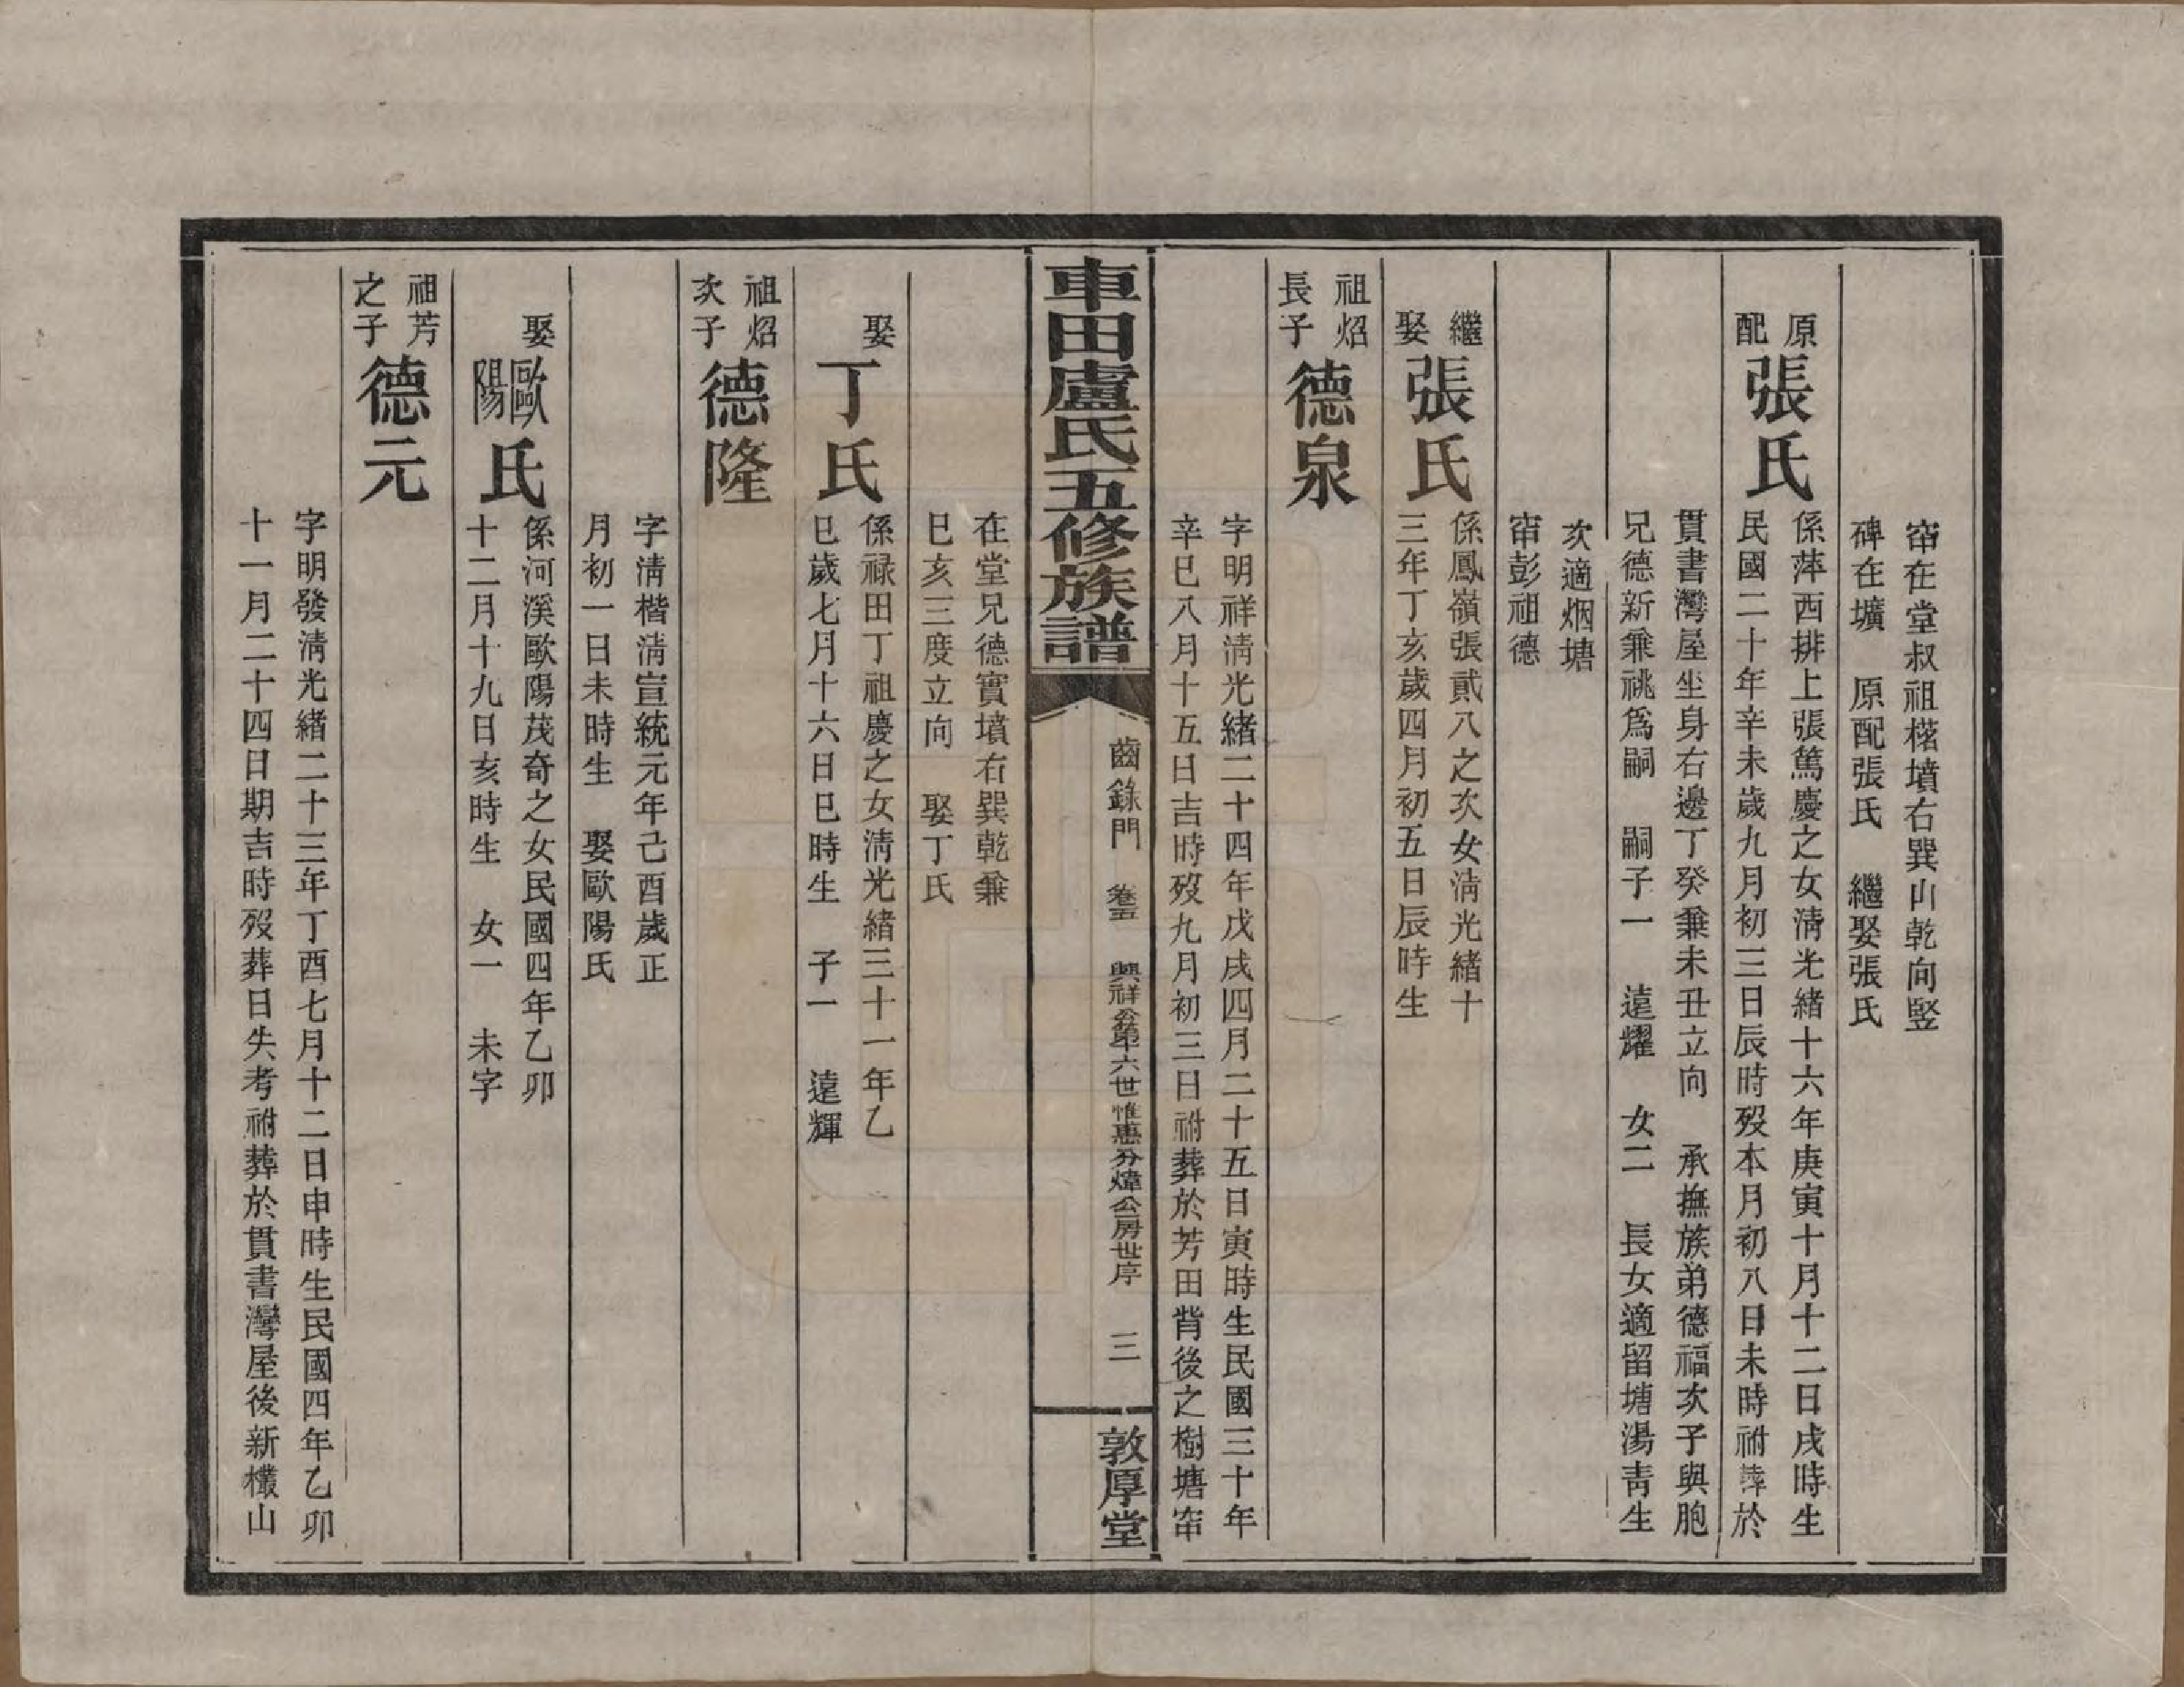 窀在堂叔祖楮墳右巽山乾向竪
碑在壙　原配張氏　繼娶張氏
原配張氏
係萍西排上張篤慶之女清光緒十六年庚寅十月十二日戌時生
民國二十年辛未歲九月初三日辰時歿本月初八日未時祔葬於
貫書灣屋坐身右邊丁癸兼未丑立向　承撫族弟德福次子與胞
兄德新兼祧爲嗣　嗣子一　遠耀　女二　長女適留塘湯靑生
次適烟塘
窀彭祖德
繼娶張氏
係鳳嶺張貳八之次女淸光緒十
三年丁亥歲四月初五日辰時生
祖炤長子德泉
字明祥淸光緒二十四年戊戌四月二十五日寅時生民國三十年
辛巳八月十五日吉時歿九月初三日祔葬於芳田背後之樹塘窀
車田盧氏五修族譜
齒錄門　卷五　興祥公第十六世惟惠分煒公房世序　三
敦厚堂
在堂兄德實墳右巽乾兼
巳亥三度立向　娶丁氏
娶丁氏
係祿田丁祖慶之女淸光緒三十一年乙
巳歲七月十六日巳時生　子一　遠輝
祖炤次子德隆
字淸楷淸宣統元年己酉歲正
月初一日未時生　娶歐陽氏
娶歐陽氏
係河溪歐陽茂奇之女民國四年乙卯
十二月十九日亥時生　女一　未字
祖芳之子德元
字明發淸光緒二十三年丁酉七月十二日申時生民國四年乙卯
十一月二十四日期吉時歿葬日失考祔葬於貫書灣屋後新欉山